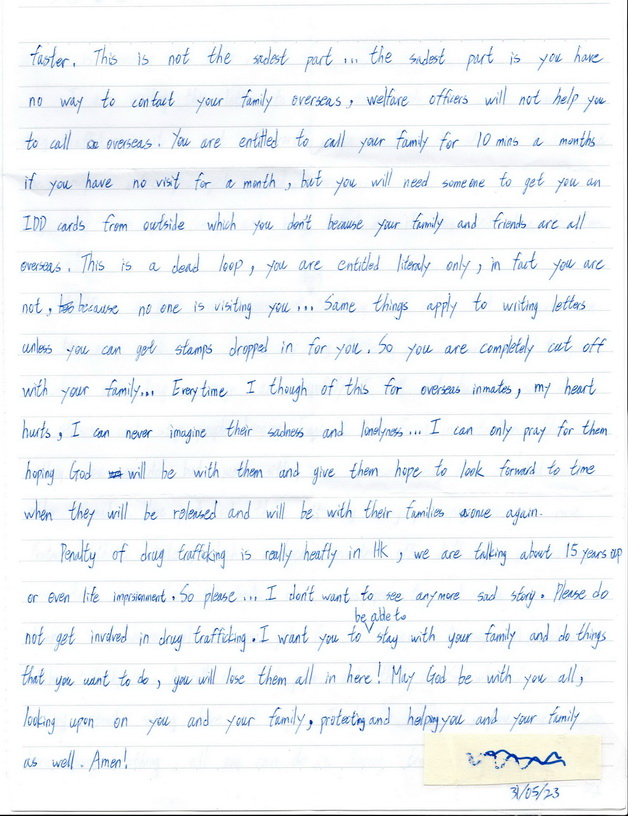 faster. This is not the sadest part ... the sadest part is you have
no way to contact your family overseas, welfare officers will not help you
to call overseas. You are entitled to call your family for 10 mins a months
if you have no visit for a month, but you will need someone to get you an
IDD cards from outside which you don't because your family and friends are all
overseas. This is a dead loop, you are entitled literaly only, in fact you are
not, because no one is visiting you ... Same things apply to writing letters
unless you can get stamps dropped in for you. So you are completely cut off
with your family... Everytime I though of this for overseas inmates, my heart
hurts, I can never imagine their sadness and lonelyness... I can only pray for them
hoping God will be with them and give them hope to look forward to time
when they will be released and will be with their families once again.
Penalty of drug trafficking is really heafly in HK, we are talking about 15 years up
or even life imprsionment. So please... I don't want to see anymore sad story. Please do
be able to
not get involved in drug trafficking. I want you to stay with your family and do things
that you want to do, you will lose them all in here! May God be with you all,
looking upon on you and your family, protecting and helping you and your family
as well. Amen!
31/05/23